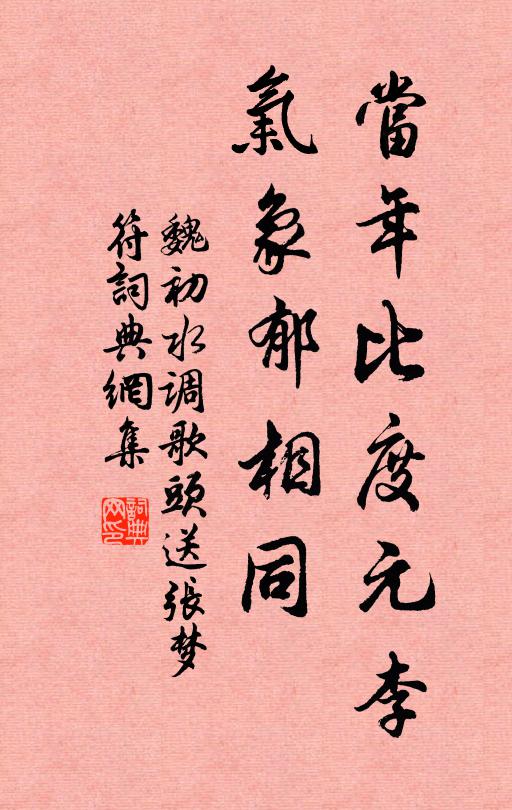 當年比度元李
氣象郁相同
魏初水调歌頭送張梦
符詞典網集
詞典网印